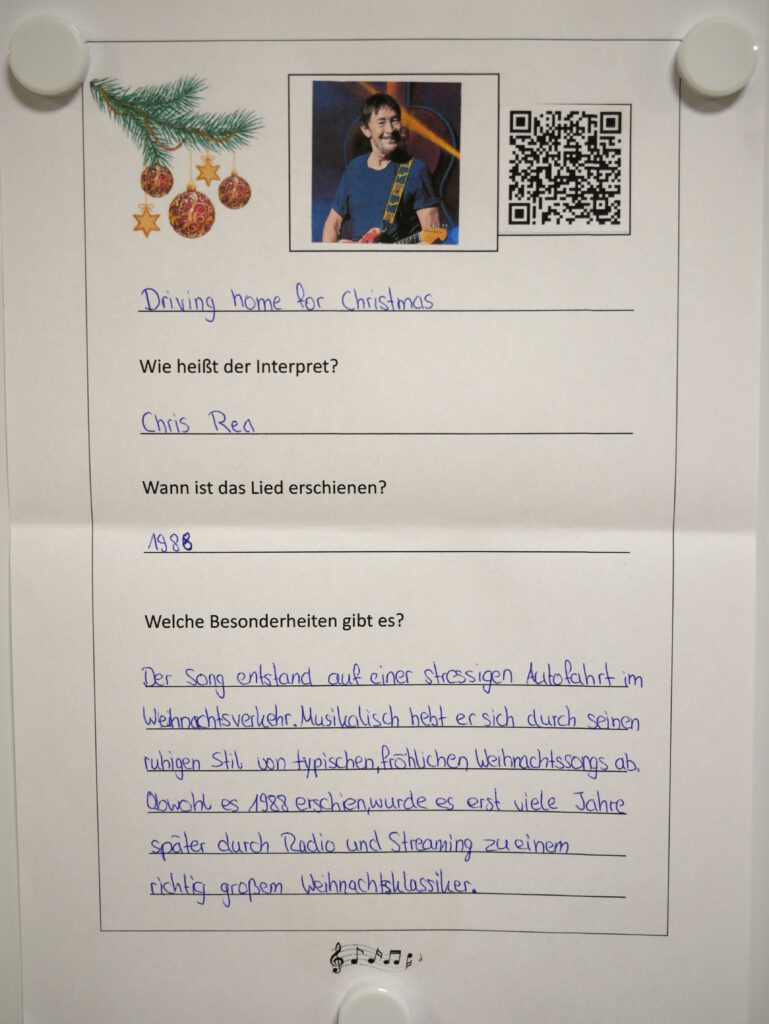 Driving home for Christmas
Wie heißt der Interpret?
Chris Rea
Wann ist das Lied erschienen?
1988
Welche Besonderheiten gibt es?
Der Song entstand auf einer stressigen Autofahrt im
Weihnachtsverkehr. Musikalisch hebt er sich durch seinen
ruhigen Stil von typischen, fröhlichen Weihnachtssongs ab.
Obwohl es 1988 erschien, wurde es erst viele Jahre
später durch Radio und Streaming zu einem
richtig großem Weihnachtsklassiker.